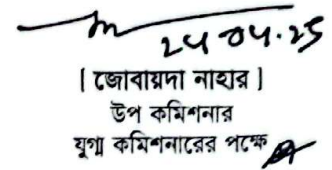 24.04.25
[ জোবায়দা নাহার ]
উপ কমিশনার
যুগ্ম কমিশনারের পক্ষে